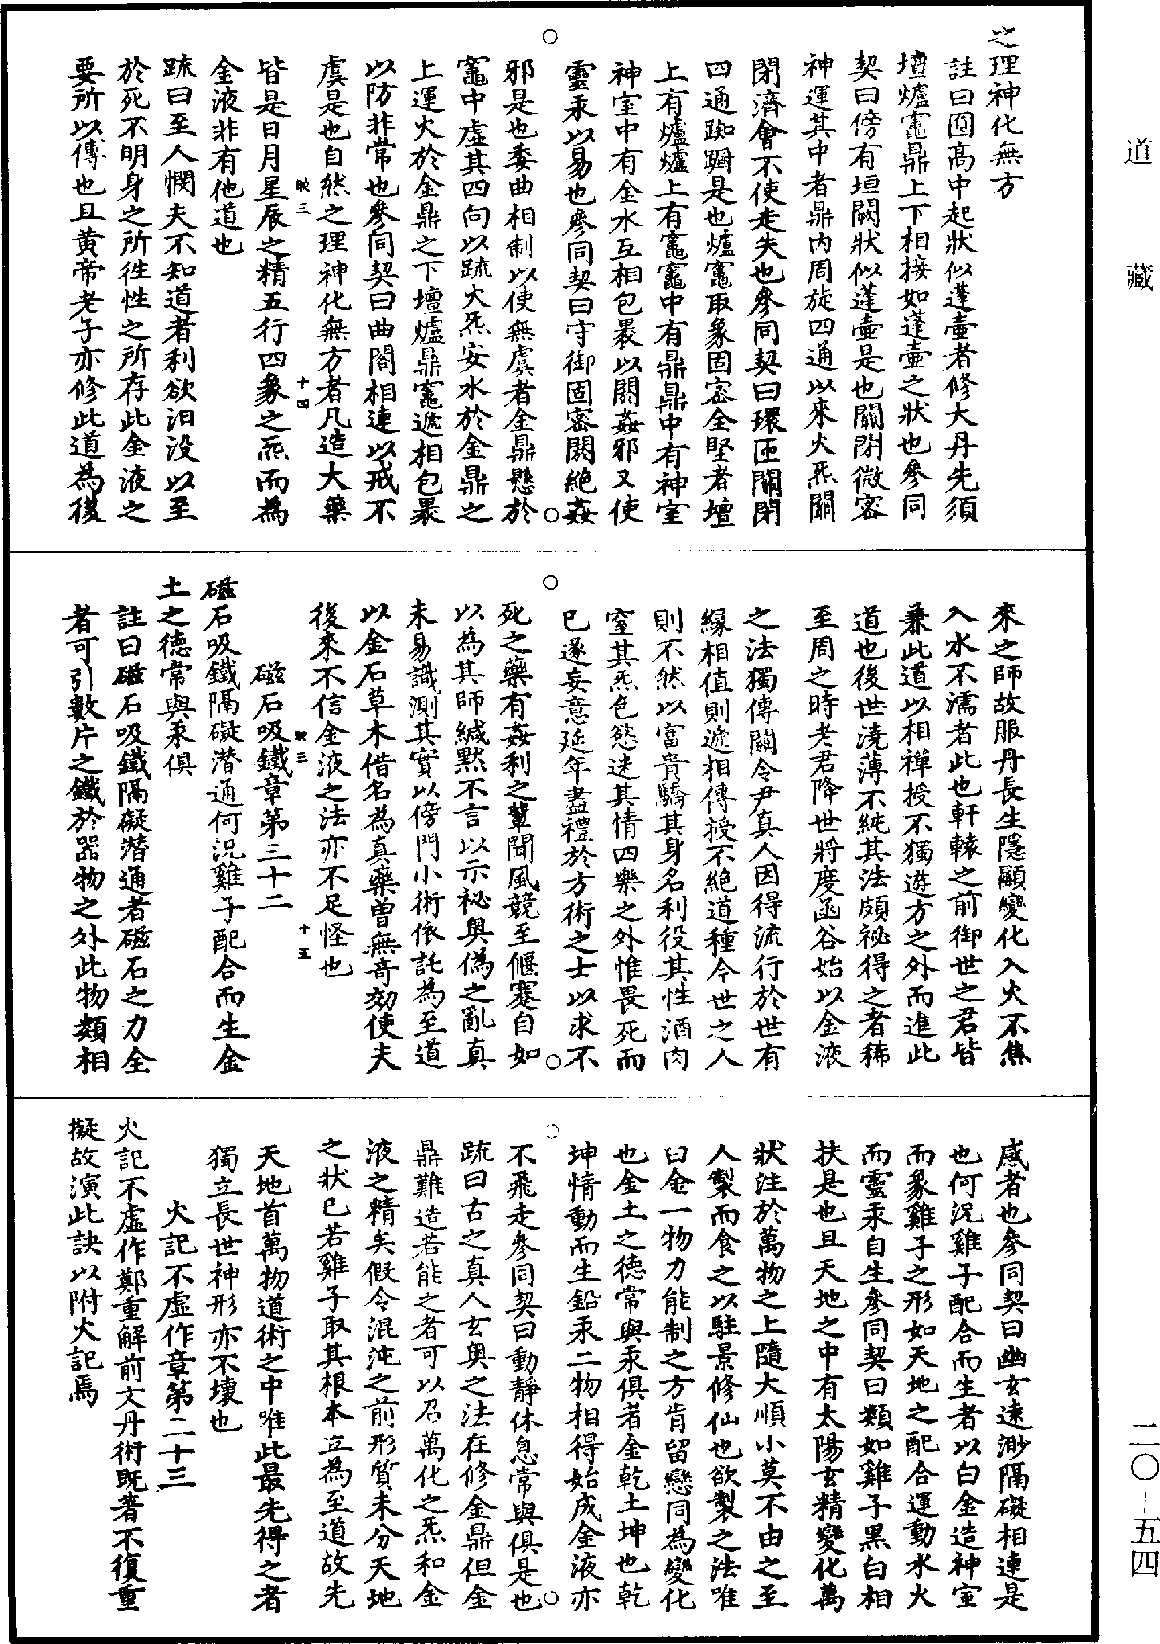 之理神化無方
註曰圓高中起狀似蓬壺者修大丹先須
壇爐竈鼎上下相接如蓬壺之狀也參同
契曰傍有垣闕狀似蓬壺是也關閉微密
神運其中者鼎內周旋四通以來火炁關
閉濟會不使走失也參同契曰環匝關閉
四通踟躕是也爐竈取象固密全堅者壇
上有爐爐上有竈竈中有鼎鼎中有神室
神室中有金水互相包褁以閼姦邪又使
靈汞以易也參同契曰守御固密閼絶姦
邪是也委曲相制以使無虞者金鼎懸於
竈中虛其四向以䟽火炁安水於金鼎之
上運火於金鼎之下壇爐鼎竈遞相包褁
以防非常也參同契曰曲閣相連以戒不
虞是也自然之理神化無方者凡造大藥
映三 十四
皆是日月星辰之精五行四象之炁而為
金液非有他道也
䟽曰至人憫夫不知道者利欲汨没以至
於死不明身之所徃性之所存此金液之
要所以傳也且黄帝老子亦修此道為後
來之師故服丹長生隱顯變化入火不焦
入水不濡者此也軒轅之前御世之君皆
兼此道以相禪授不獨遊方之外而進此
道也後世澆薄不純其法頗祕得之者稀
至周之時老君降世將度函谷始以金液
之法獨傳關令尹真人因得流行於世有
緣相值則遞相傳授不絶道種今世之人
則不然以富貴驕其身名利役其性酒肉
窒其炁色慾迷其情四樂之外惟畏死而
已遂妄意延年盡禮於方術之士以求不
死之藥有姦利之輩聞風競至偃蹇自如
以為其師緘黙不言以示祕奥偽之亂真
未易識測其實以傍門小術依託為至道
以金石草木借名為真藥曽無竒効使夫
後來不信金液之法亦不足怪也
映三 十五
磁石吸鐵章第三十二
磁石吸鐵隔礙潜通何況雞子配合而生金
土之德常與汞俱
註曰磁石吸鐵隔礙潜通者磁石之力全
者可引數片之鐵於器物之外此物類相
感者也參同契曰幽玄遠渺隔礙相連是
也何況雞子配合而生者以白金造神室
而象雞子之形如天地之配合運動水火
而靈汞自生參同契曰類如雞子黑白相
扶是也且天地之中有太陽玄精變化萬
狀注於萬物之上隨大順小莫不由之至
人製而食之以駐景修仙也欲製之法唯
白金一物力能制之方肯留戀同為變化
也金土之德常與汞俱者金乾土坤也乾
坤情動而生鉛汞二物相得始成金液亦
不飛走參同契曰動靜休息常與俱是也
䟽曰古之真人玄奥之法在修金鼎但金
鼎難造若能之者可以召萬化之炁和金
液之精矣假令混沌之前形質未分天地
之狀已若雞子取其根本立為至道故先
天地首萬物道術之中唯此最先得之者
獨立長世神形亦不壊也
火記不虛作章第二十三
火記不虛作鄭重解前文丹術既著不復重
擬故演此訣以附火記焉
道藏
二〇-五四